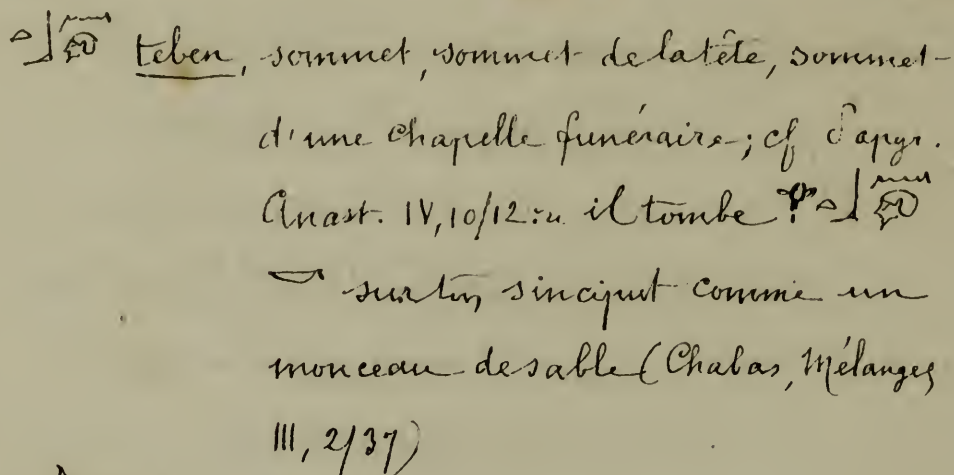 𓏏𓃀𓈖𓁶 teben, sommet, sommet de la tête, sommet
d'une chapelle funéraire; cf Papyr.
Anast. IV, 10/12: « il tombe 𓁷𓏏𓃀𓈖𓁶
𓎡 sur ton sinciput comme un
monceau de sable (Chabas, Mélanges
III, 2/37)